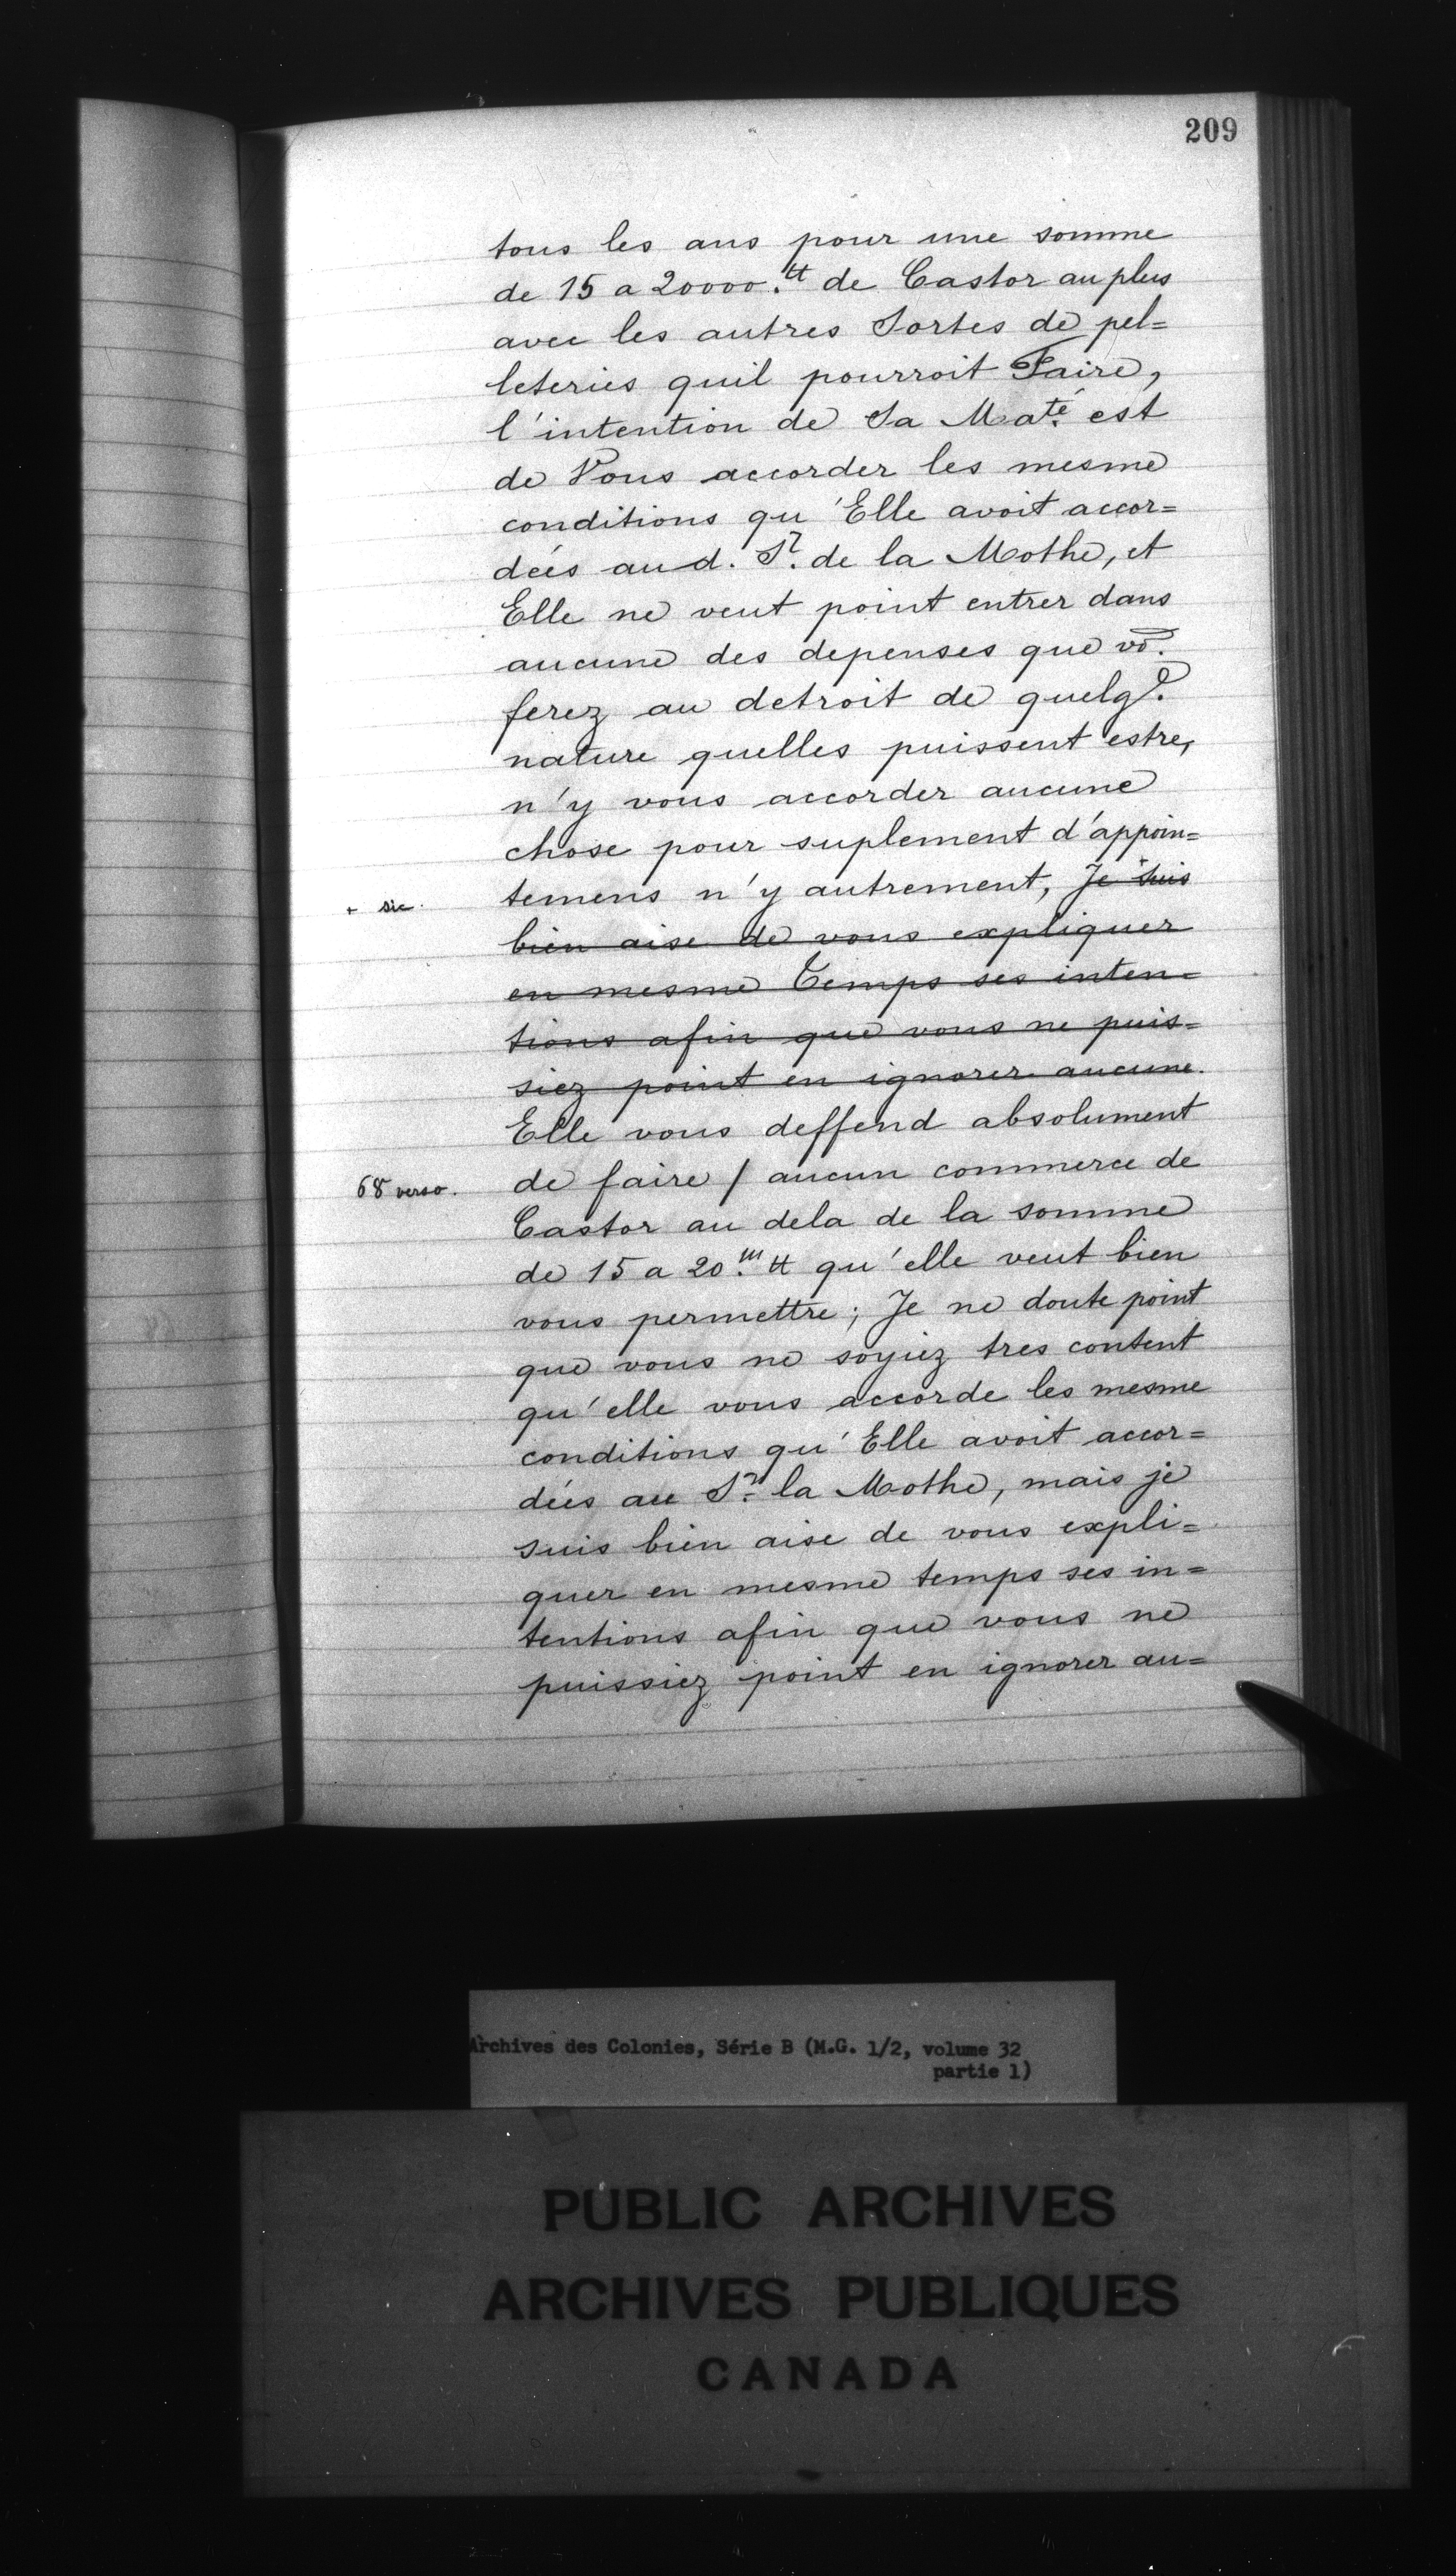 209
tous les ans pour une somme
de 15 a 20000.tt de Castor au plus
avec les autres Sortes de pel=
leteries quil pourroit Faire,
l'intention de Sa Maté. est
de Vous accorder les mesme
conditions qu'Elle avoit accor=
dées au d. Sr. de la Mothe, et
Elle ne veut point entrer dans
aucune des depenses que vō.
ferez au detroit de quelq.
nature quelles puissent estre,
n'y vous accorder aucune
chose pour suplement d'appoin=
+ sic. temens n'y autrement, Je suis
bien aise de vous expliquer
en mesme Temps ses inten=
tions afin que vous ne puis=
siez point en ignorer aucune.
Elle vous deffend absolument
68 verso. de faire / aucun commerce de
Castor au dela de la somme
de 15 a 20.m tt qu'elle veut bien
vous permettre; Je ne doute point
que vous ne soyiez tres content
qu'elle vous accorde les mesme
conditions qu'Elle avoit accor=
dées au Sr. la Mothe, mais je
suis bien aise de vous expli=
quer en mesme temps ses in=
tentions afin que vous ne
puissiez point en ignorer au=
Archives des Colonies, Série B (M.G. 1/2, volume 32
partie 1)
PUBLIC ARCHIVES
ARCHIVES PUBLIQUES
CANADA